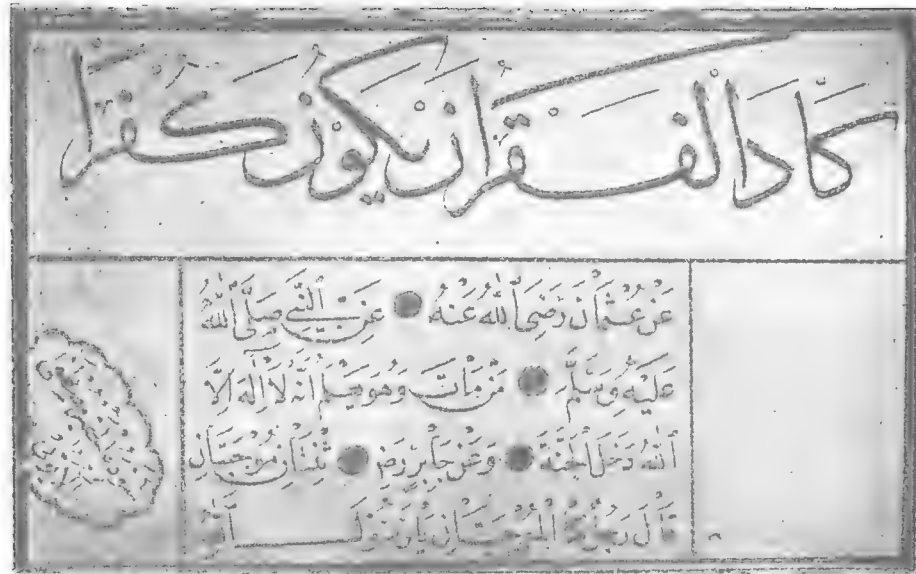 كَادَ الْفَقْرُ اَنْ يَكُوْنَ كُفْرًا
عَنْ عُثْمَانَ رَضِىَ اللّٰهُ عَنْهُ عَنِ النَّبِىِّ صَلَّى اللّٰهُ
عَلَيْهِ وَسَلَّمَ مَنْ مَاتَ وَهُوَ يَعْلَمُ اَنَّهُ لَا اِلٰهَ اِلَّا
اللّٰهُ دَخَلَ الْجَنَّةَ وَعَنْ جَابِرٍ رض ثِنْتَانِ مُوْجِبَتَانِ
قَالَ رَجُلٌ مَا الْمُوْجِبَتَانِ يَا رَسُوْلَ اللّٰهِ